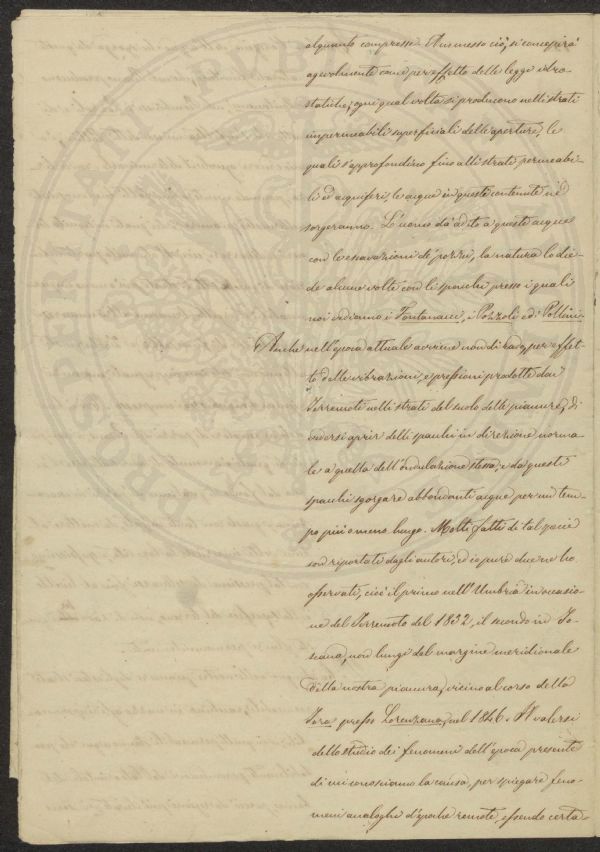 alquanto compresse. Ammesso ciò, si concepirà
agevolmente come per effetto delle leggi idro-
statiche, ogni qual volta si producono nelli strati
impermeabili superficiali delle aperture, le
quali s'approfondino fino alli strati permeabi-
li ed acquiferi, le acque in questi contenute
sorgeranno. L'uomo dà adito a queste acque
con le escavazioni de' pozzi, la natura lo die-
de alcune volte con li spacchi presso i quali
noi vediamo i Fontanacci, i Pozzoli ed i Pollini.
Anche nell'epoca attuale avviene non di rado, per effet-
to delle vibrazioni, e pressioni prodotte dai
Terremoti nelli strati del suolo delle pianure, di
vedersi aprir delli spacchi in direzione norma-
le a quella dell'ondulazione stessa, e da questi
spacchi sgorgare abbondanti acque per un tem-
po più o meno lungo. Molti fatti di tal
son riportati dagli autori, ed io pure due ne ho
osservati, cioè il primo nell'Umbria in occasio-
ne del Terremoto del 1832, il secondo in To-
scana, non lungi del margine meridionale
della nostra pianura, vicino al corso della
Tora presso Lorenzana, nel 1846. Il valersi
dello studio dei fenomeni dell'epoca presente
di cui conosciamo la causa, per spiegare feno-
meni analoghi d'epoche remote, essendo certa-